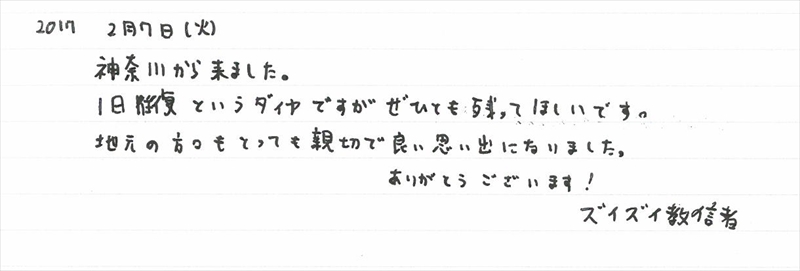 2017 2月7日(火)
神奈川から来ました。
1日1往復というダイヤですがぜひとも残ってほしいです。
地元の方々もとっても親切で良い思い出になりました。
ありがとうございます!
ズイズイ教信者